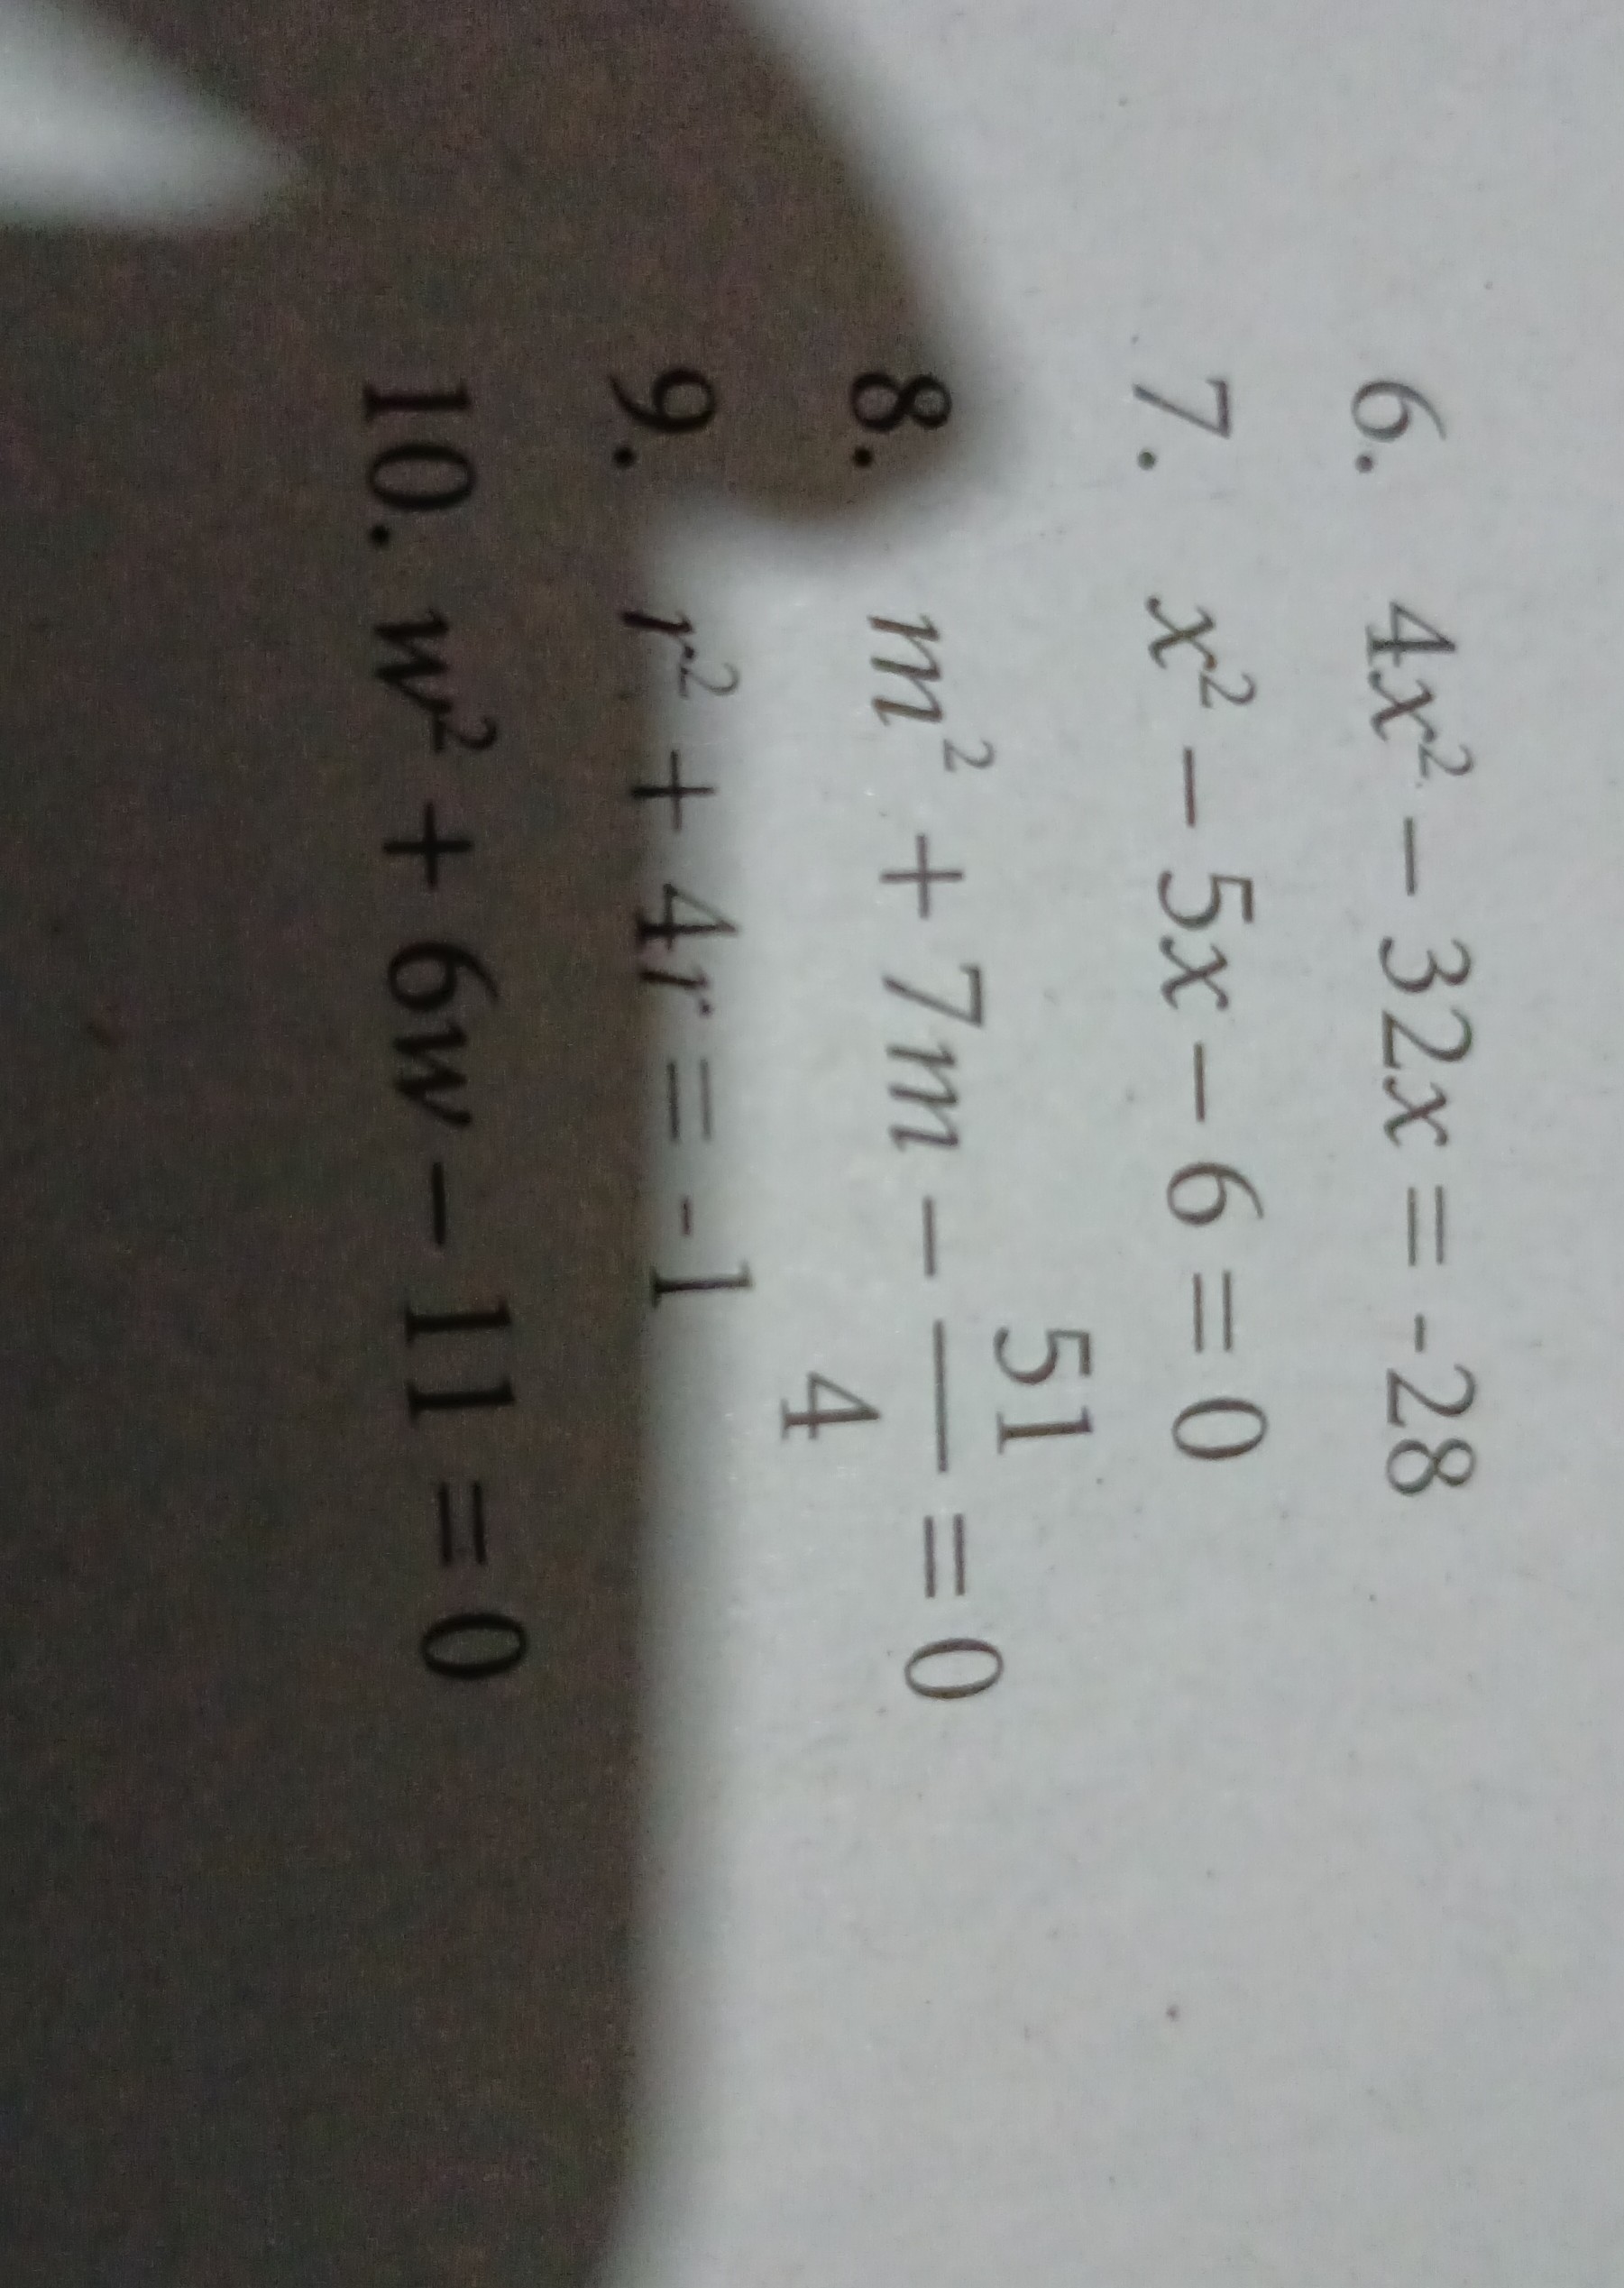 6. 4x² – 32x = -28
7. x² – 5x – 6 = 0
8. m² + 7m – 51/4 = 0
9. r² + 4r = -1
10. w² + 6w – 11 = 0